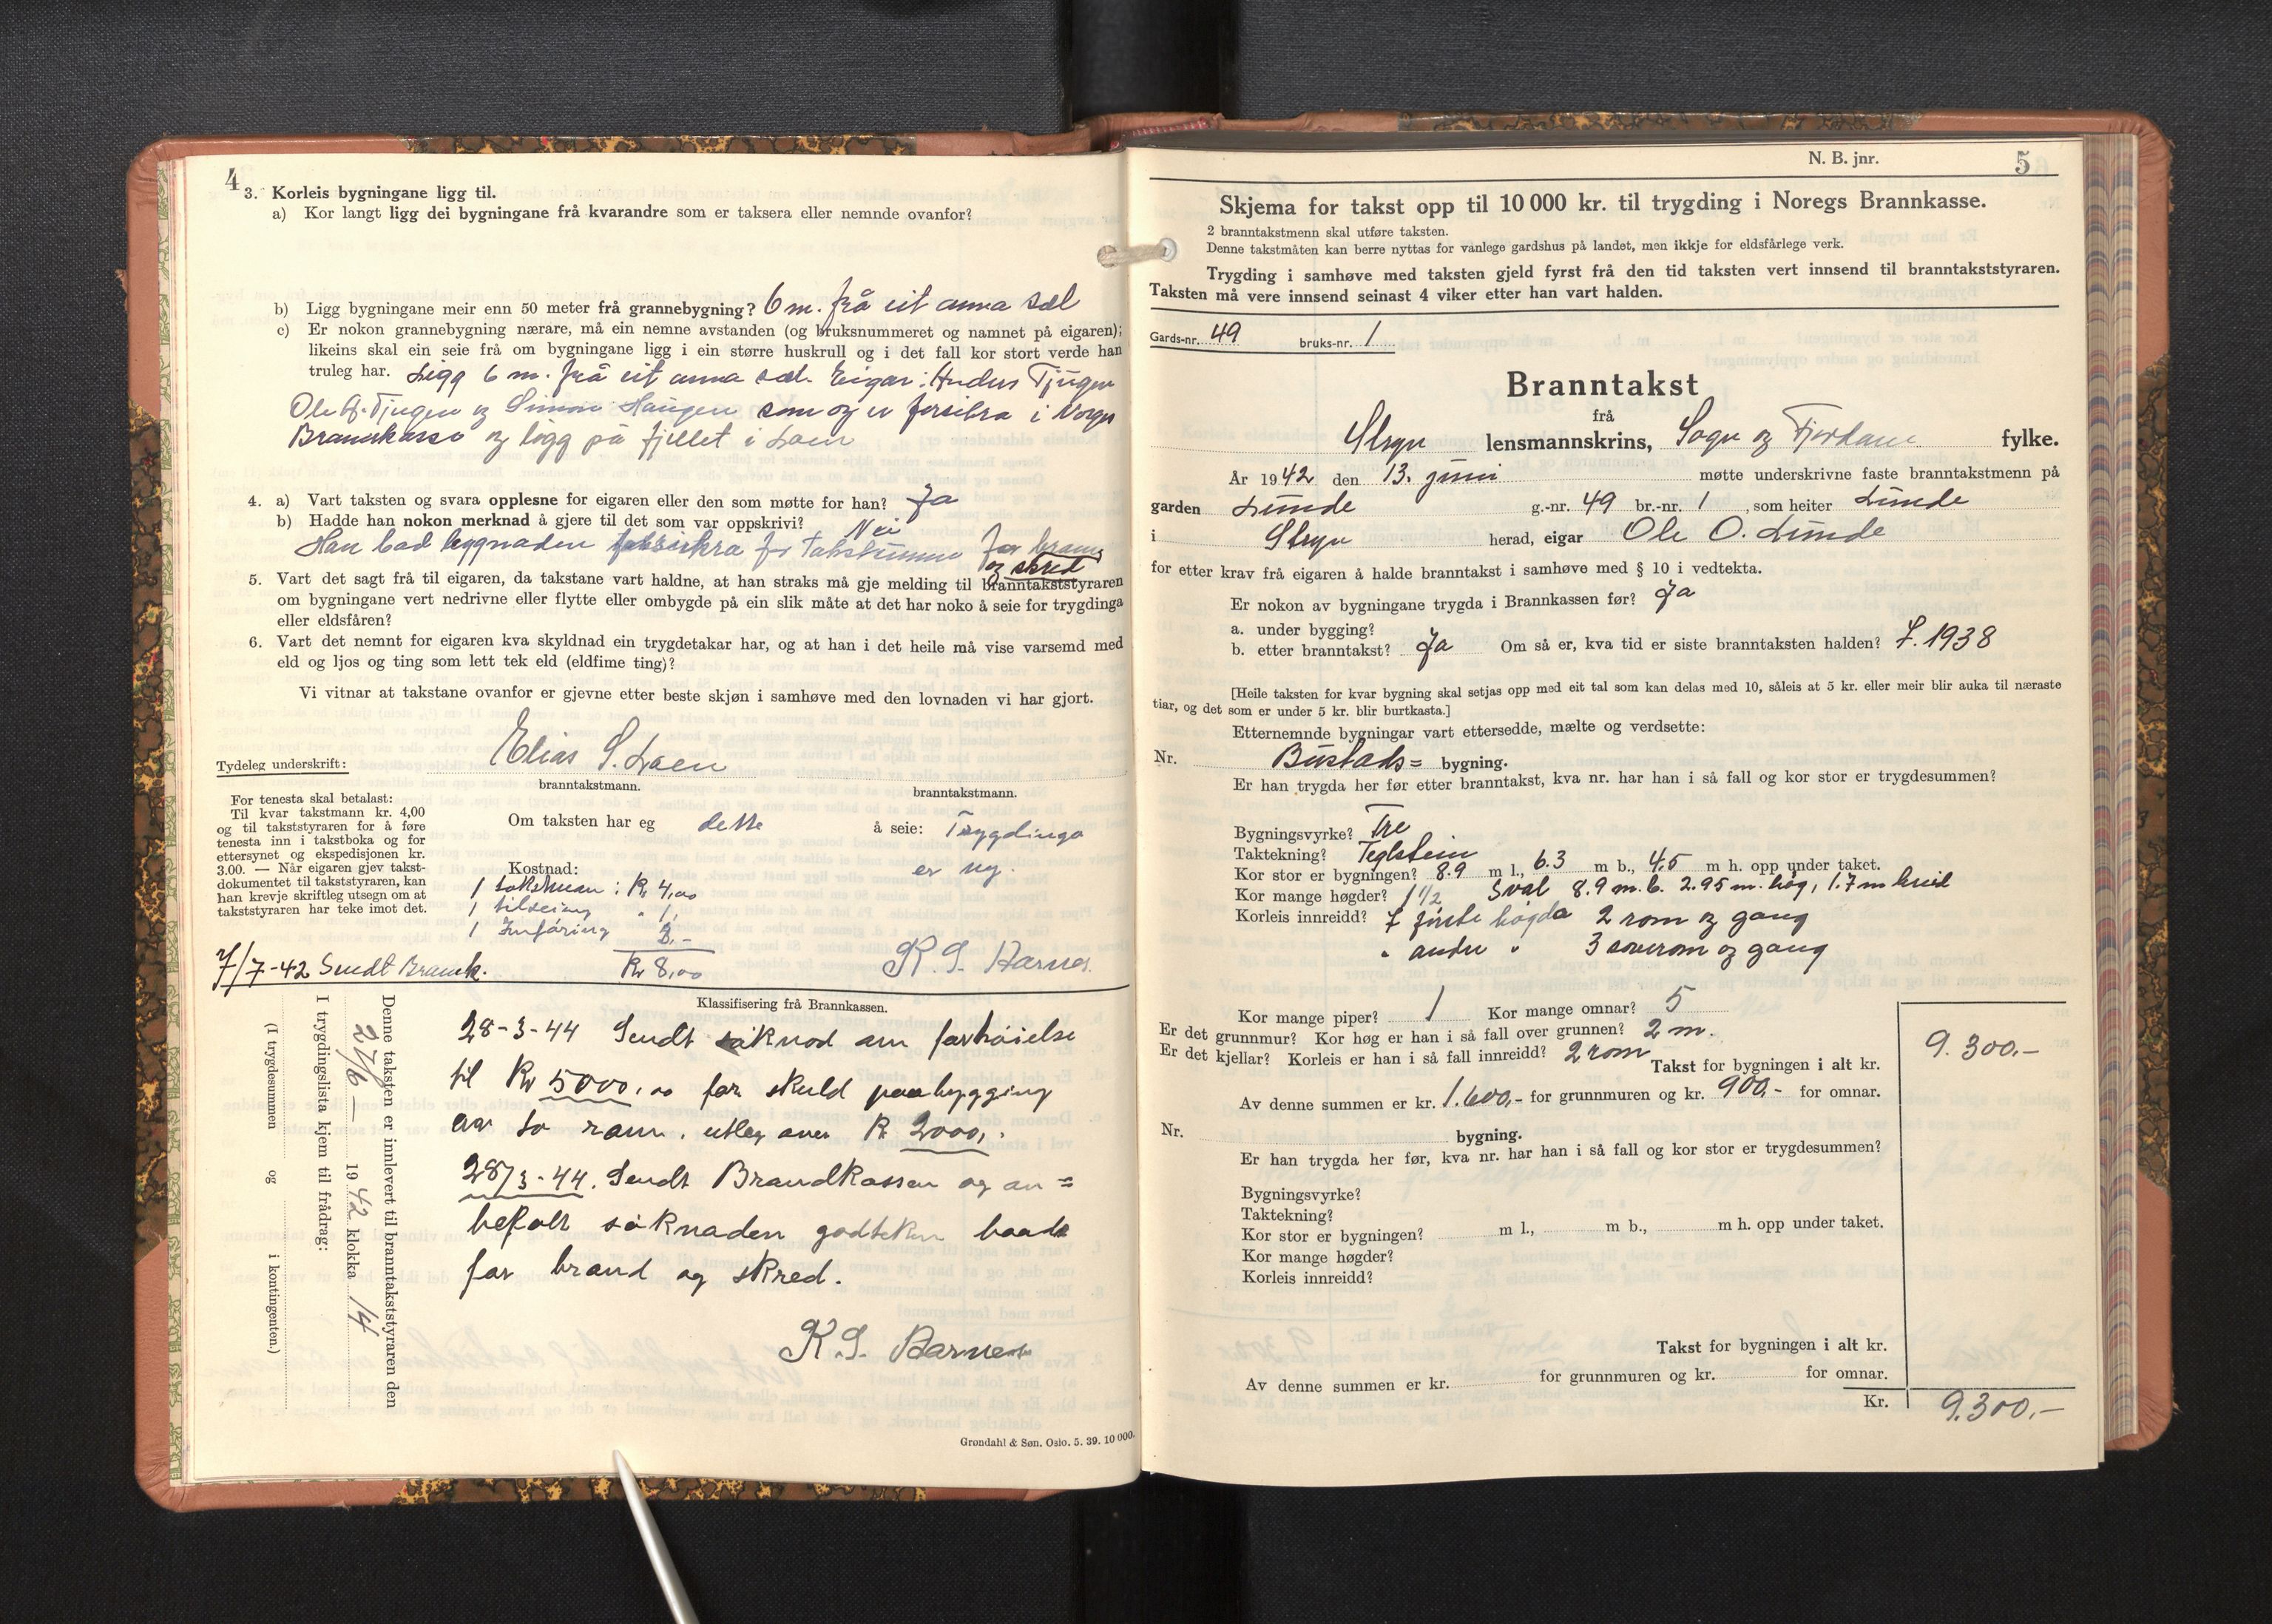 4
3. Korleis bygningane ligg til.
a) Kor langt ligg dei bygningane frå kvarandre som er taksera eller nemnde ovanfor?
b) Ligg bygningane meir enn 50 meter frå grannebygning? 6 m. frå eit anna sel
c) Er nokon grannebygning nærare, må ein nemne avstanden (og bruksnummeret og namnet på eigaren);
likeins skal ein seie frå om bygningane ligg i ein større huskrull og i det fall kor stort verde han
truleg har. Ligg 6 m. frå eit anna sel. Eigar: Anders Tjugen
Ole A. Tjugen og Simon Haugen som og er forsikra i Norges
Brannkasse og ligg på fjellet i Loen
4. a) Vart taksten og svara opplesne for eigaren eller den som møtte for han? Ja
b) Hadde han nokon merknad å gjere til det som var oppskrivi? Nei
Han bad bygnaden forsikra for takstsummen for brann
og skred
5. Vart det sagt frå til eigaren, da takstane vart haldne, at han straks må gje melding til branntakststyraren
om bygningane vert nedrivne eller flytte eller ombygde på ein slik måte at det har noko å seie for trygdinga
eller eldsfåren?
6. Vart det nemnt for eigaren kva skyldnad ein trygdetakar har, og at han i det heile må vise varsemd med
eld og ljos og ting som lett tek eld (eldfime ting)?
Vi vitnar at takstane ovanfor er gjevne etter beste skjøn i samhøve med den lovnaden vi har gjort.
Tydeleg underskrift: Elias S. Loen
branntakstmann. branntakstmann.
For tenesta skal betalast:
Til kvar takstmann kr. 4,00
og til takststyraren for å føre
tenesta inn i takstboka og for
ettersynet og ekspedisjonen kr.
3.00. — Når eigaren gjev takst-
dokumentet til takststyraren, kan
han krevje skriftleg utsegn om at
takststyraren har teke imot det.
Om taksten har eg dette å seie: Trygdinga
er ny.
Kostnad:
1 takstmann: Kr 4,00
1 tilseing " 1,
1 Innføring 3,-
Kr 8,00
7/7-42 Sendt Brannk.
K. S. Aarnes
Klassifisering frå Brannkassen.
28-3-44 Sendt søknod om forhøielse
til Kr 5000,00 for skuld paabygging
av to rom. utleg over Kr 2000,.
28/3-44. Sendt Brandkassen og an=
befalt søknaden godteken baade
for brand og skred.
K. S. Aarnes
Denne taksten er innlevert til branntakststyraren den
27/6 — 1942 klokka 14
I trygdingslista kjem til frådrag:
(I trygdesummen og i kontingenten.)
Grøndahl & Søn. Oslo. 5. 39. 10 000.
N. B. jnr.
5
Skjema for takst opp til 10 000 kr. til trygding i Noregs Brannkasse.
2 branntakstmenn skal utføre taksten.
Denne takstmåten kan berre nyttas for vanlege gardshus på landet, men ikkje for eldsfårlege verk.
Trygding i samhøve med taksten gjeld fyrst frå den tid taksten vert innsend til branntakststyraren.
Taksten må vere innsend seinast 4 viker etter han vart halden.
Gards-nr. 49 bruks-nr. 1
Branntakst
frå
Stryn lensmannskrins, Sogn og Fjordane fylke.
År 1942 den 13. juni møtte underskrivne faste branntakstmenn på
garden Lunde g.-nr. 49 br.-nr. 1, som heiter Lunde
i Stryn herad, eigar Ole O. Lunde
for etter krav frå eigaren å halde branntakst i samhøve med § 10 i vedtekta.
Er nokon av bygningane trygda i Brannkassen før? Ja
a. under bygging?
b. etter branntakst? Ja Om så er, kva tid er siste branntaksten halden? F. 1938
[Heile taksten for kvar bygning skal setjas opp med eit tal som kan delas med 10, såleis at 5 kr. eller meir blir auka til næraste
tiar, og det som er under 5 kr. blir burtkasta.]
Etternemnde bygningar vart ettersedde, mælte og verdsette:
Nr. Bustads= bygning.
Er han trygda her før etter branntakst, kva nr. har han i så fall og kor stor er trygdesummen?
Bygningsvyrke? Tre
Taktekning? Teglstein
Kor stor er bygningen? 8.9 m l., 6.3 m b., 4.5 m h. opp under taket.
Kor mange høgder? 1 1/2 Sval 8.9 m. l. 2.95 m. høg, 1.7 m breid
Korleis innreidd? I fyrste høgda 2 rom og gang
" andre " 3 soverom og gang
Kor mange piper? 1 Kor mange omnar? 5
Er det grunnmur? Kor høg er han i så fall over grunnen? 2 m.
Er det kjellar? Korleis er han i så fall innreidd? 2 rom
Takst for bygningen i alt kr. 9.300.-
Av denne summen er kr. 1.600,- for grunnmuren og kr. 900,- for omnar.
Nr. bygning.
Er han trygda her før, kva nr. har han i så fall og kor stor er trygdesummen?
Bygningsvyrke?
Taktekning?
Kor stor er bygningen? m l., m b., m h. opp under taket.
Kor mange høgder?
Korleis innreidd?
Takst for bygningen i alt kr.
Av denne summen er kr. for grunnmuren og kr. for omnar.
Kr. 9.300.-